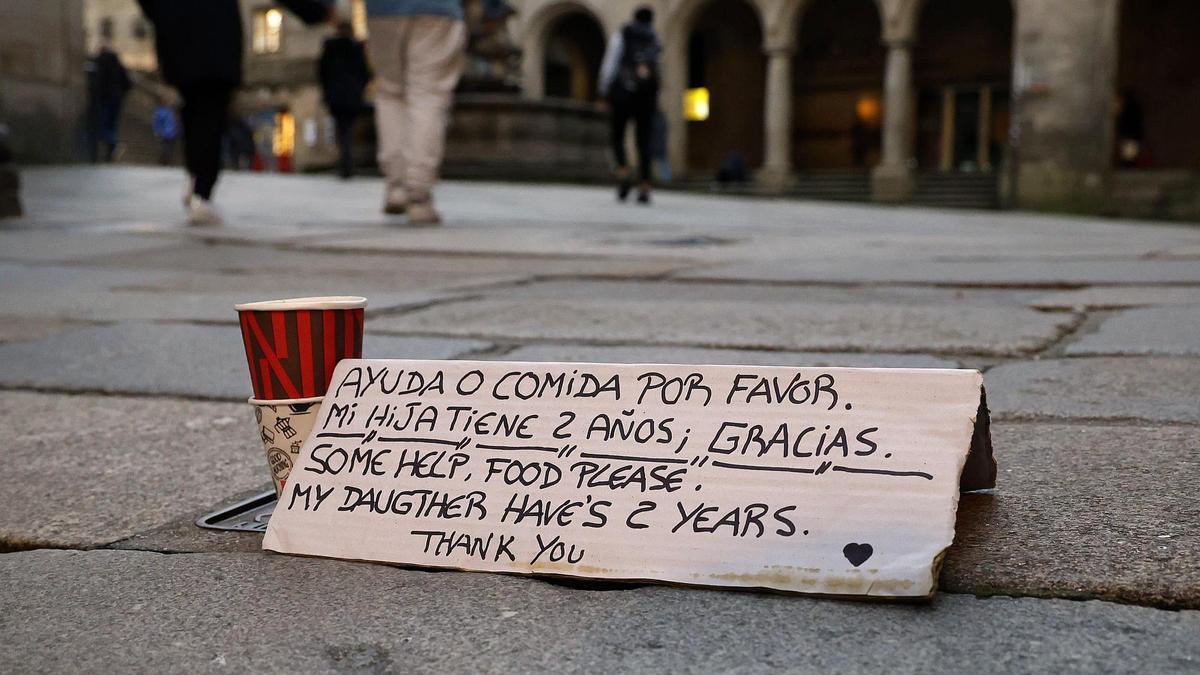 AYUDA O COMiDA POR FAVOR.
Mi HiJA TiENE 2 AÑOS; GRACiAS.
SOME HELP, FOOD PLEASE.
MY DAUGTHER HAVE'S 2 YEARS.
THANK YOU